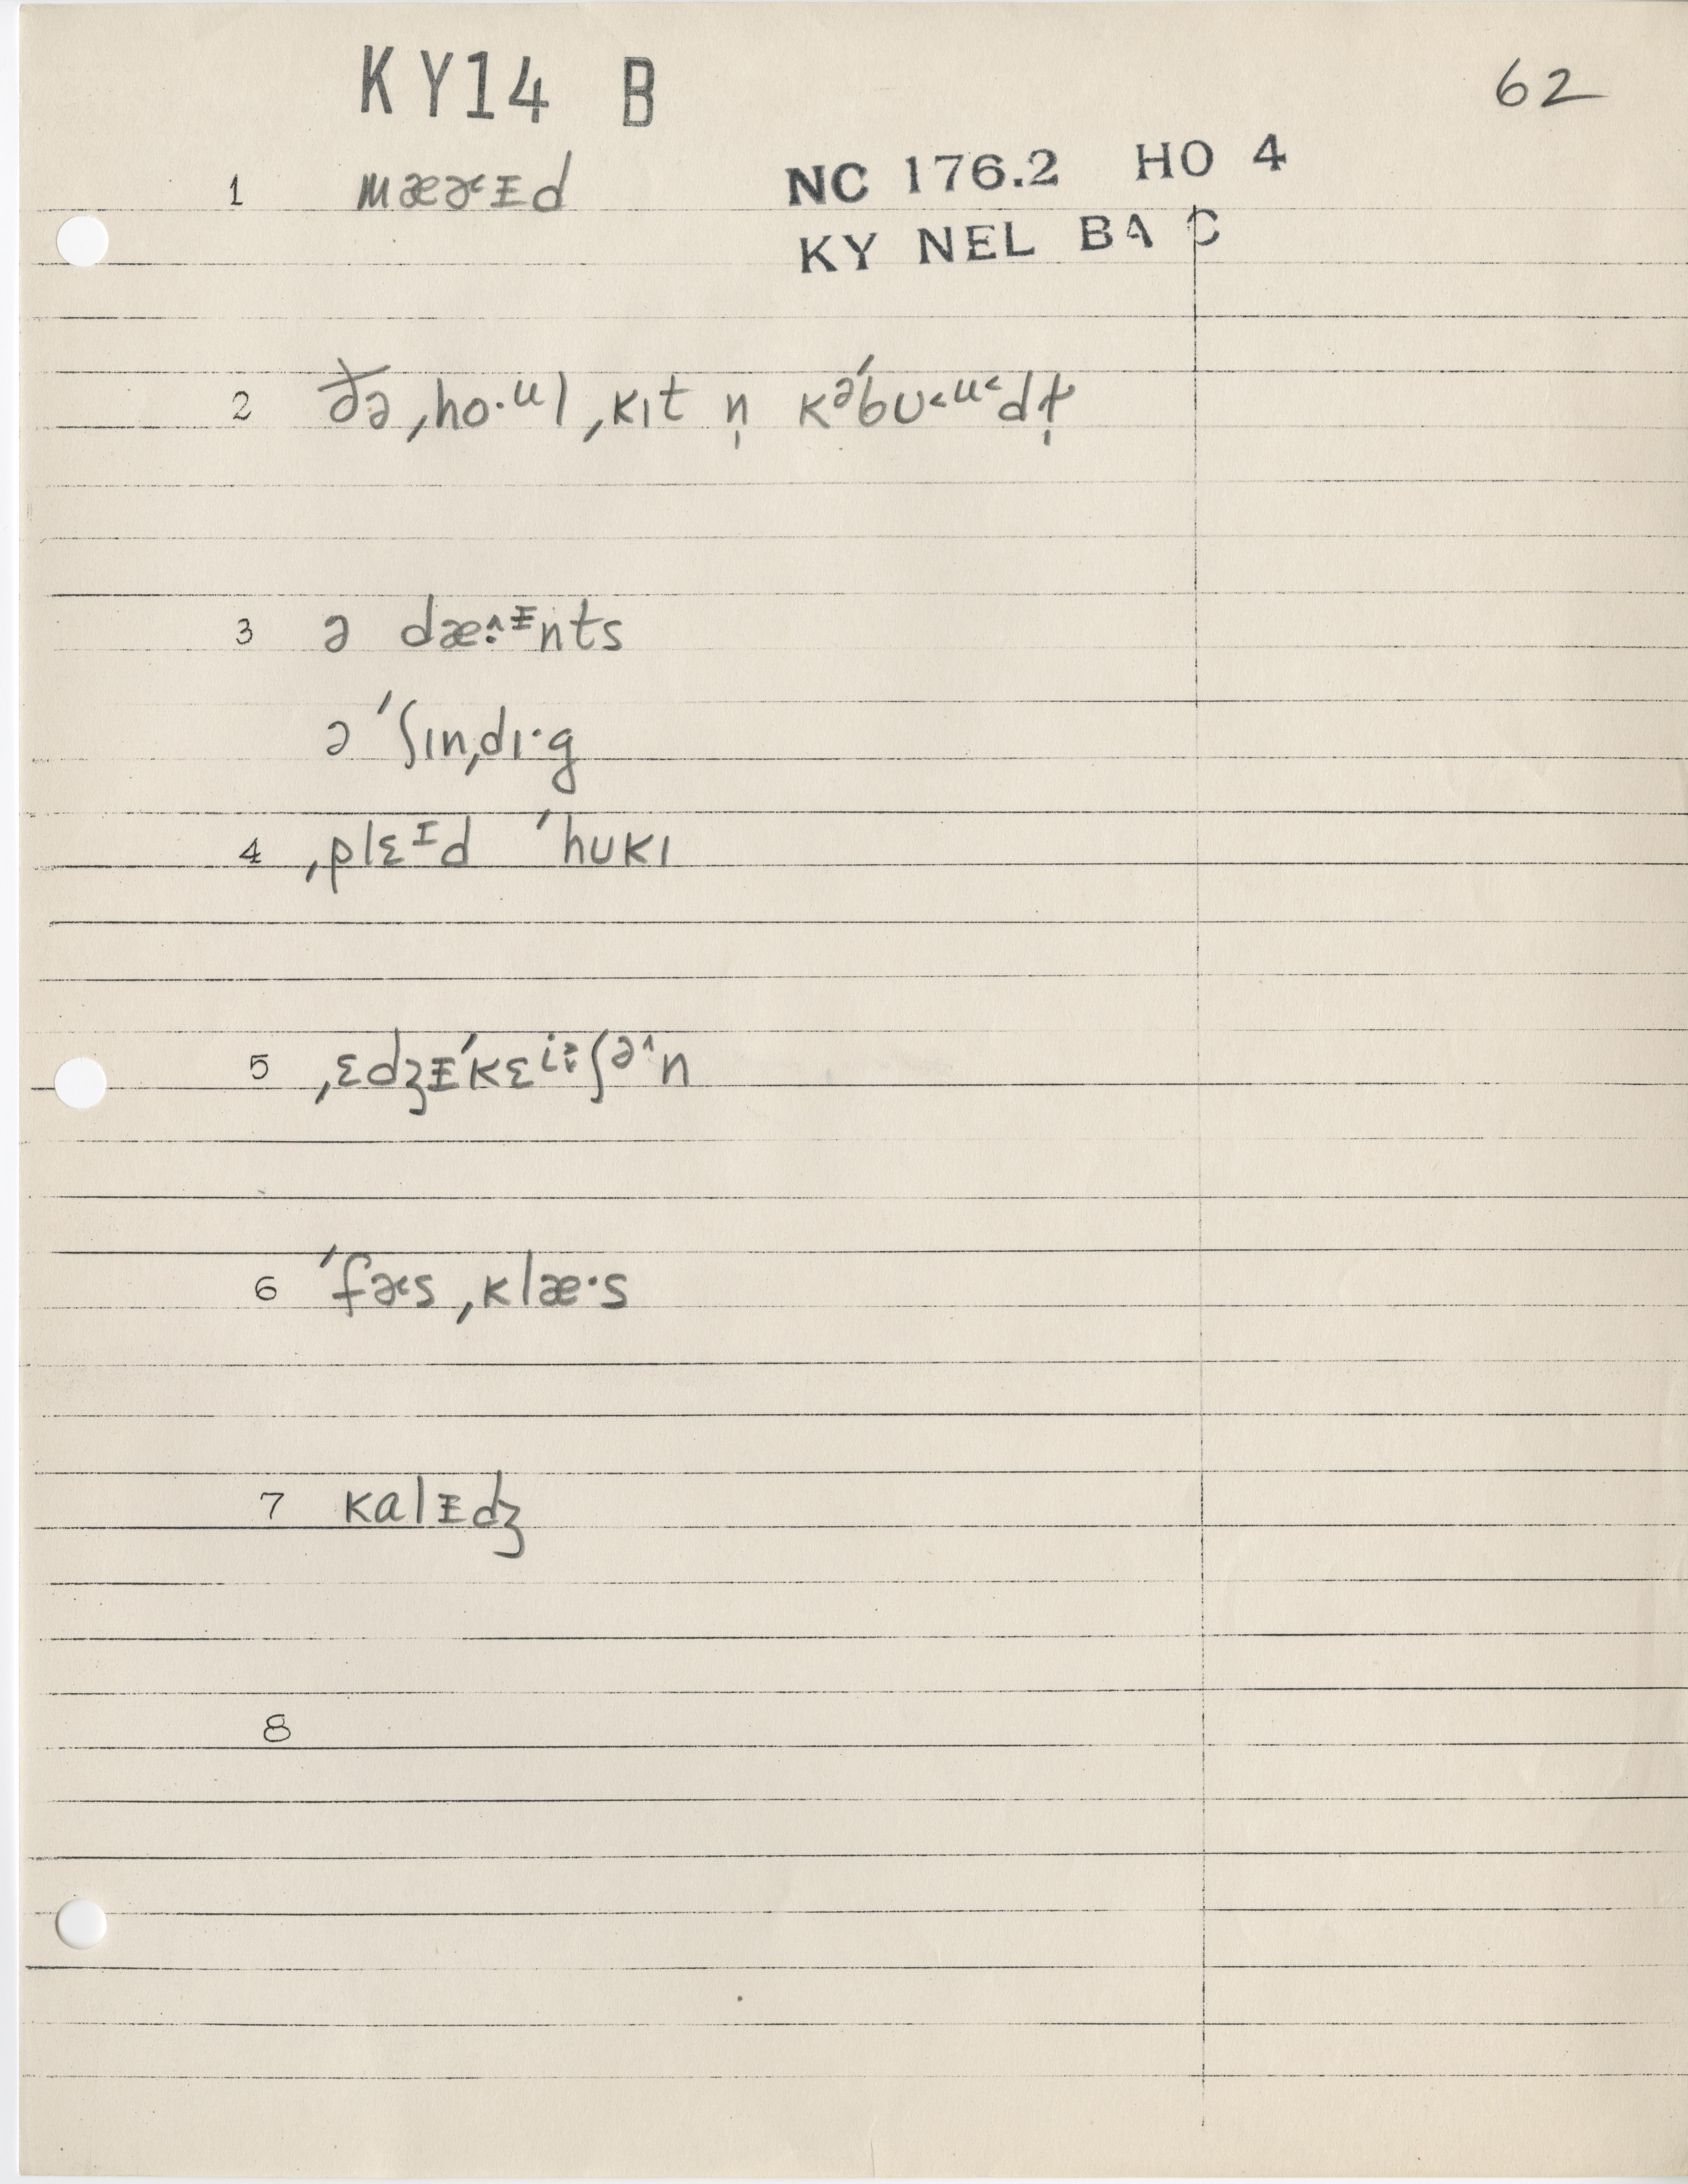 KY14 B
62
NC 176.2 HO 4
KY NEL BA C
1 mæɚ˂ᵻd
2 ðə ˌho·ᵘl ˌkɪt n̩ kəˈbʊ˂ᵘ˂dɫ̩
3 ə dæ:^ᵻnts
ə ˈʃɪnˌdɪ·g
4 ˌplɛᴵd ˈhʊkɪ
5 ˌɛdʒᵻˈkɛⁱ˃ʃə^n
6 ˈfɚ˂s ˌklæ·s
7 kɑlᵻdʒ
8